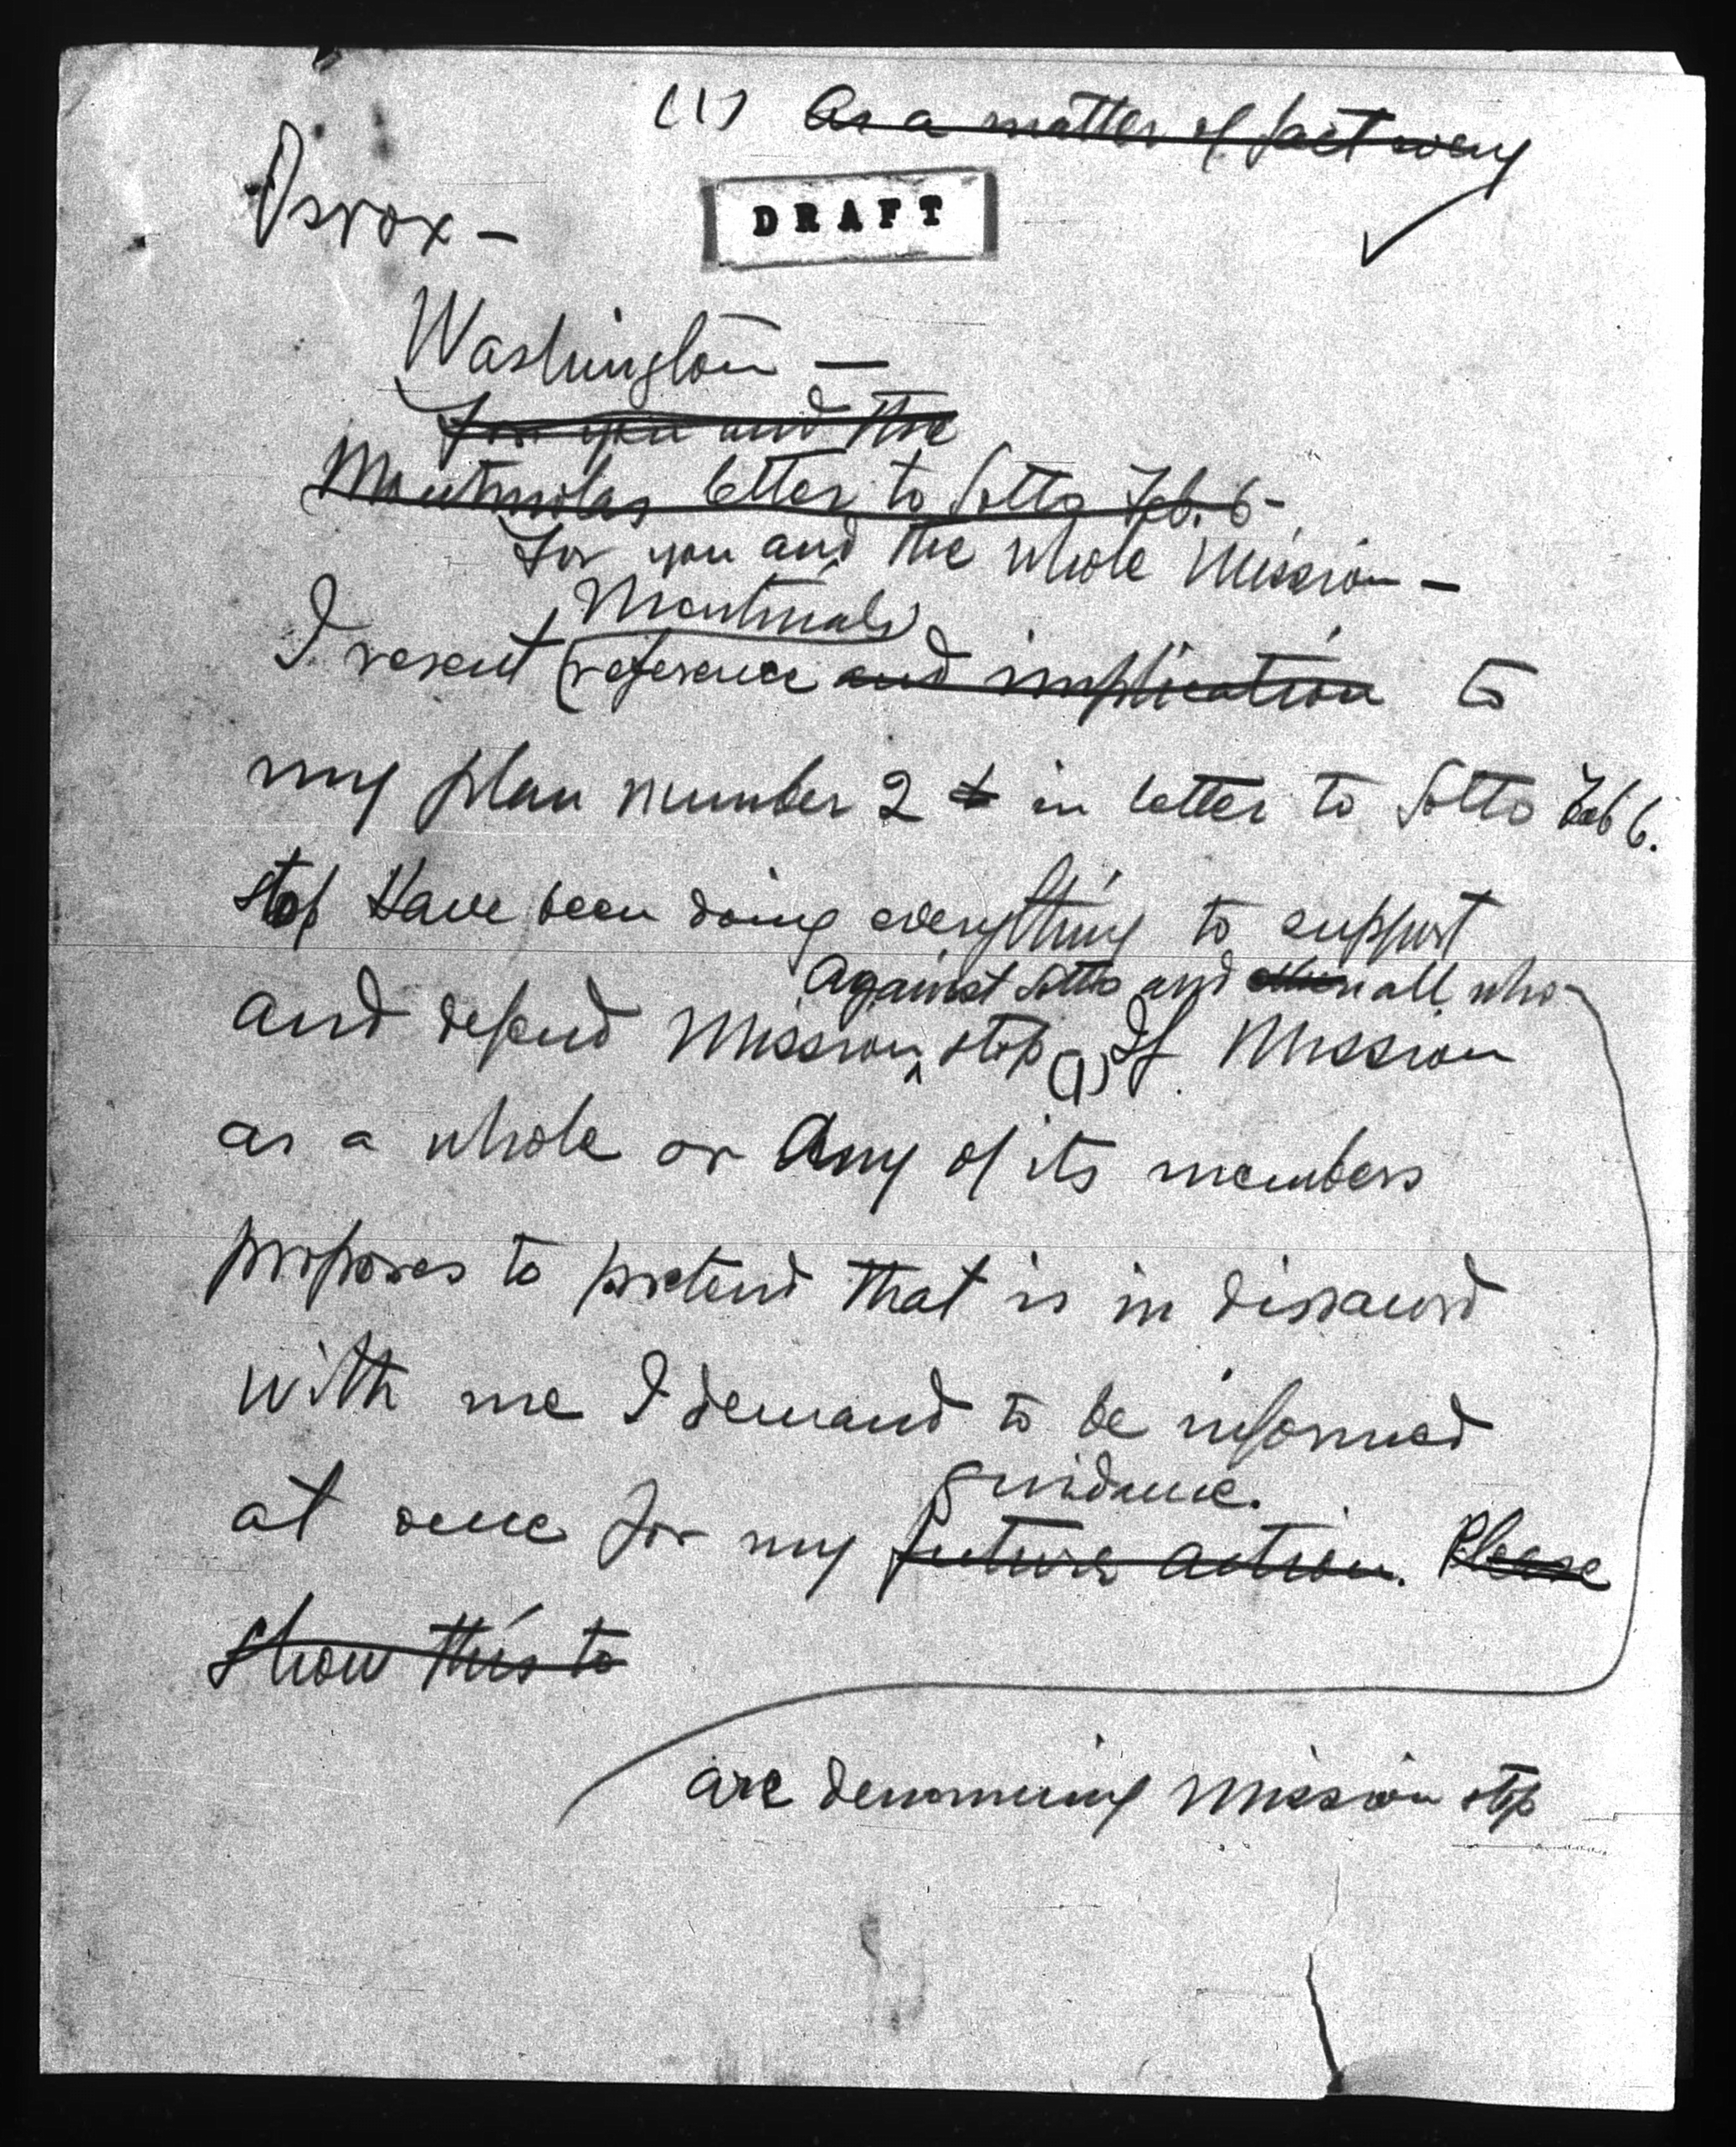 (1) As a matter of fact every
Osrox -
DRAFT
Washington —
For you and the
Montinolas letter to Sotto Feb. 6-
For you and the whole Mission —
Montinola
I resent reference and implication to
my plan number 2 in letter to Sotto Feb 6.
stop Have been doing everything to support
against Sotto and all who
and defend Mission, stop (1) If Mission
as a whole or any of its members
proposes to pretend that is in disaccord
with me I demand to be informed
guidance.
at once for my future action. Please
show this to
are denouncing Mission stop